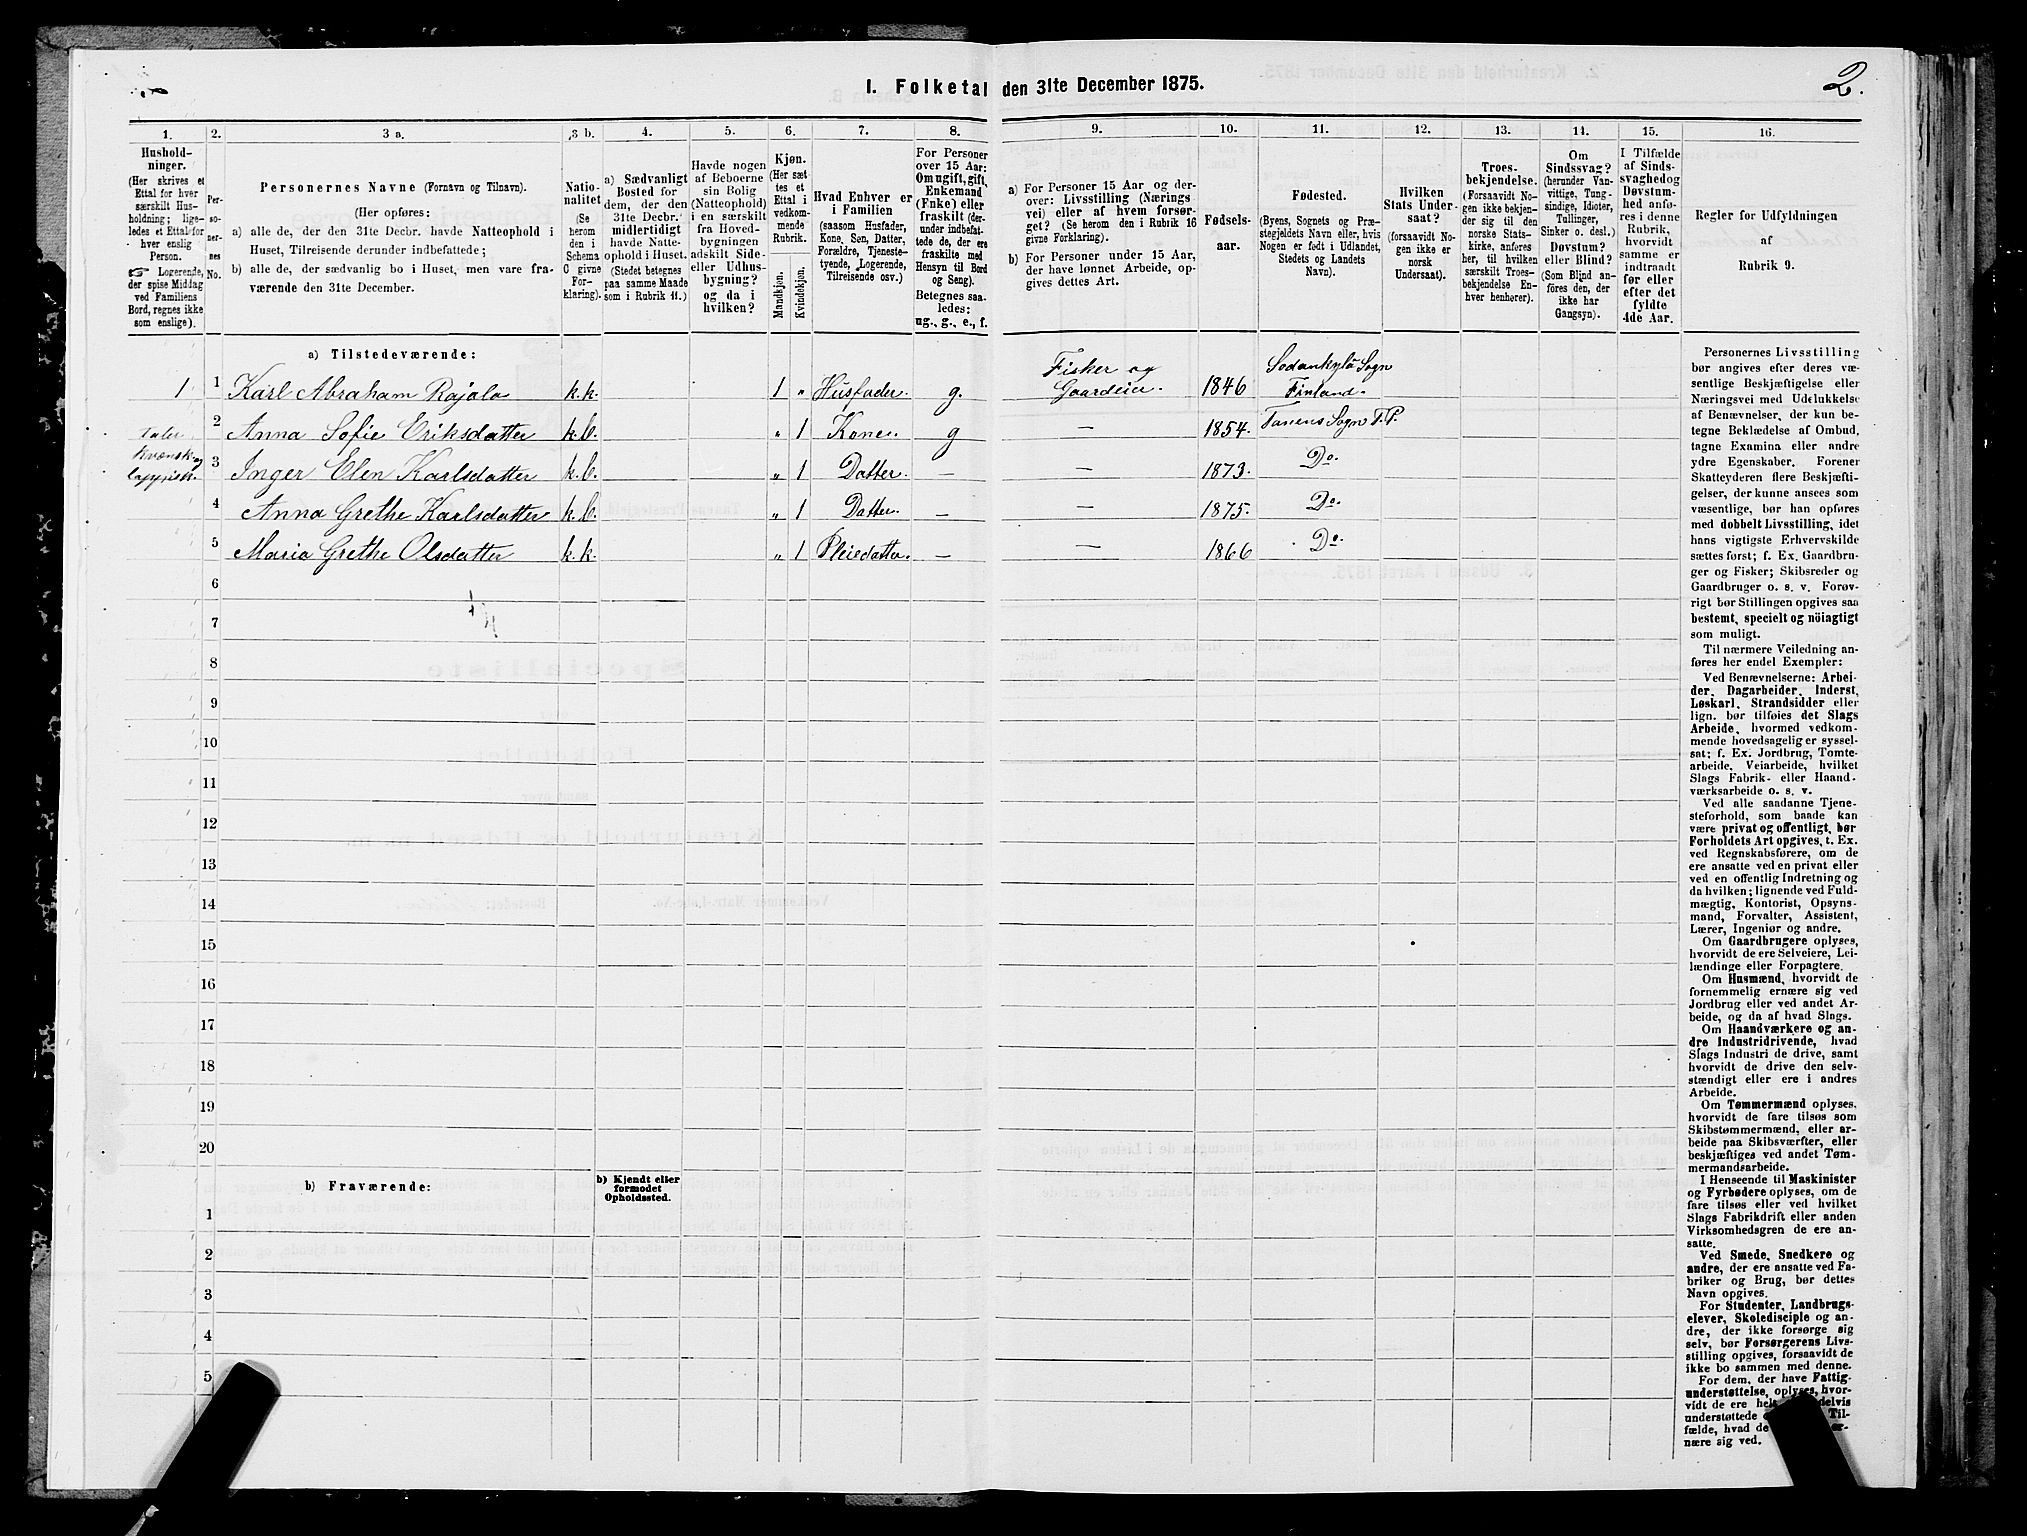 I. Folketal den 31te December 1875.
2.
1. 2. 3 a. 3 b. 4. 5. 6. 7. 8. 9. 10. 11. 12. 13. 14. 15. 16.
Hushold-
ninger.
(Her skrives et
Ettal for hver
særskilt Hus-
holdning; lige-
ledes et Ettal for
hver enslig
Person.
☞ Logerende,
der spise Middag
ved Familiens
Bord, regnes ikke
som enslige).
Per-
so-
ner-
nes
No.
Personernes Navne (Fornavn og Tilnavn).
(Her opføres:
a) alle de, der den 31te Decbr. havde Natteophold i
Huset, Tilreisende derunder indbefattede;
b) alle de, der sædvanlig bo i Huset, men vare fra-
værende den 31te December.
Natio-
nalitet
(Se
herom
den i
Schema
C givne
For-
klaring).
a) Sædvanligt
Bosted for
dem, der den
31te Decbr.
midlertidigt
havde Natte-
ophold i Huset.
(Stedet betegnes
paa samme Maade
som i Rubrik 11.)
Havde nogen
af Beboerne
sin Bolig
(Natteophold)
i en særskilt
fra Hoved-
bygningen
adskilt Side-
eller Udhus-
bygning?
og da i
hvilken?
Kjøn.
(Her sæt-
tes et
Ettal i
vedkom-
mende
Rubrik.
Mandkjøn.
Kvindekjøn.
Hvad Enhver er
i Familien
(saasom Husfader,
Kone, Søn, Datter,
Forældre, Tjeneste-
tyende, Logerende,
Tilreisende osv.)
For Personer
over 15 Aar:
Om ugift, gift,
Enkemand
(Enke) eller
fraskilt (der-
under indbefat-
tede de, der ere
fraskilte med
Hensyn til Bord
og Seng).
Betegnes saa-
ledes:
ug., g., e., f.
a) For Personer 15 Aar og der-
over: Livsstilling (Nærings
vei) eller af hvem forsør-
get? (Se herom den i Rubrik 16
givne Forklaring).
b) For Personer under 15 Aar,
der have lønnet Arbeide, op-
gives dettes Art.
Fødsels-
aar.
Fødested.
(Byens, Sognets og Præ-
stegjeldets Navn eller, hvis
Nogen er født i Udlandet,
Stedets og Landets
Navn).
Hvilken
Stats Under-
saat?
(forsaavidt No-
gen ikke er
norsk
Undersaat).
Troes-
bekjendelse.
(Forsaavidt No-
gen ikke bekjen-
der sig til den
norske Stats-
kirke, anføres
her, til hvilken
særskilt Troes-
bekjendelse En-
hver henhører).
Om
Sindssvag?
(herunder Van-
vittige, Idioter,
Tullinger,
Sinker o. desl.)
Døvstum?
eller Blind?
(Som Blind an-
føres den, der
ikke har
Gangsyn).
I Tilfælde
af Sinds-
svaghed og
Døvstum-
hed anfø-
res i denne
Rubrik,
hvorvidt
samme er
indtraadt
før eller
efter det
fyldte
4de Aar.
Regler for Udfyldningen
af
Rubrik 9.
a) Tilstedeværende:
1 1 Karl Abraham Rajala k.k. 1 " Husfader. g. Fisker og Gaardeier. 1846 Sodankylä Sogn Finland.
2 Anna Sofie Eriksdatter k.b. " 1 Kone. g — 1854. Tanens Sogn T.P.
taler
kvænsk og
lappisk.
3 Inger Elen Karlsdatter k.b. " 1 Datter. — — 1873. Do.
4 Anna Grethe Karlsdatter k.b. " 1 Datter. — — 1875. Do.
5 Maria Grethe Olsdatter k.k. " 1 Pleiedatter. — — 1866 Do.
6
7
8
9
10
11
12
13
14
15
16
17
18
19
20
b) Fraværende:
b) Kjendt eller
formodet
Opholdssted.
1
2
3
4
5
Personernes Livsstilling
bør angives efter deres væ-
sentlige Beskjæftigelse eller
Næringsvei med Udelukkelse
af Benævnelser, der kun be-
tegne Beklædelse af Ombud,
tagne Examina eller andre
ydre Egenskaber. Forener
Skatteyderen flere Beskjæfti-
gelser, der kunne ansees som
væsentlige, bør han opføres
med dobbelt Livsstilling, idet
hans vigtigste Erhvervskilde
sættes først; f. Ex. Gaardbru-
ger og Fisker; Skibsreder og
Gaardbruger o. s. v. Forøv-
rigt bør Stillingen opgives saa
bestemt, specielt og nöiagtigt
som muligt.
Til nærmere Veiledning an-
føres her endel Exempler:
Ved Benævnelserne: Arbei-
der, Dagarbeider, Inderst,
Løskarl, Strandsidder eller
lign. bør tilføies det Slags
Arbeide, hvormed vedkom-
mende hovedsagelig er syssel-
sat; f. Ex. Jordbrug, Tomte-
arbeide, Veiarbeide, hvilket
Slags Fabrik- eller Haand-
værksarbeide o. s. v.
Ved alle saadanne Tjene-
steforhold, som baade kan
være privat og offentligt, bør
Forholdets Art opgives, t. Ex.
ved Regnskabsførere, om de
ere ansatte ved en privat eller
ved en offentlig Indretning og
da hvilken; lignende ved Fuld-
mægtig, Kontorist, Opsyns-
mand, Forvalter, Assistent,
Lærer, Ingeniør og andre.
Om Gaardbrugere oplyses,
hvorvidt de ere Selveiere, Lei-
lændinge eller Forpagtere.
Om Husmænd, hvorvidt de
fornemmelig ernære sig ved
Jordbrug eller ved andet Ar-
beide, og da af hvad Slags.
Om Haandværkere og an-
dre Industridrivende, hvad
Slags Industri de drive, samt
hvorvidt de drive den selv-
stændigt eller ere i andres
Arbeide.
Om Tømmermænd oplyses,
hvorvidt de fare tilsøs som
Skibstømmermænd, eller ar-
beide paa Skibsværfter, eller
beskjæftiges ved andet Tøm-
mermandsarbeide.
I Henseende til Maskinister
og Fyrbødere oplyses, om de
fare tilsøs eller ved hvilket
Slags Fabrikdrift eller anden
Virksomhedsgren de ere an-
satte.
Ved Smede, Snedkere og
andre, der ere ansatte ved Fa-
briker og Brug, bør dettes
Navn opgives.
For Studenter, Landbrugs-
elever, Skoledisciple og an-
dre, der ikke forsørge sig
selv, bør Forsørgerens Livs-
stilling opgives, forsaavidt de
ikke bo sammen med denne.
For dem, der have Fattig-
understøttelse, oplyses, hvor-
vidt de ere hel delvis
understøttede Til-
fælde, hvad de er-
nære sig ved.